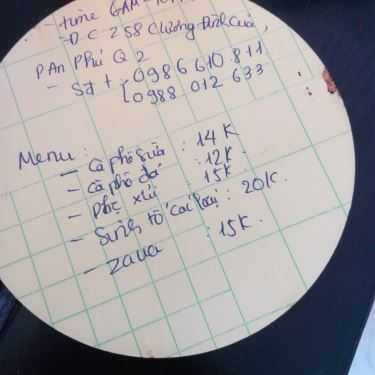 - time 6AM - 10
- ĐC 258 Lương Định Của,
P An Phú Q2
- Sđt: 0986 610 811
0988 012 633
Menu:
- Cà phê sữa : 14K
- Cà phê đá : 12K
- Bạc xỉu : 15K
- Sinh tố các loại : 20K.
- Zaua : 15K.